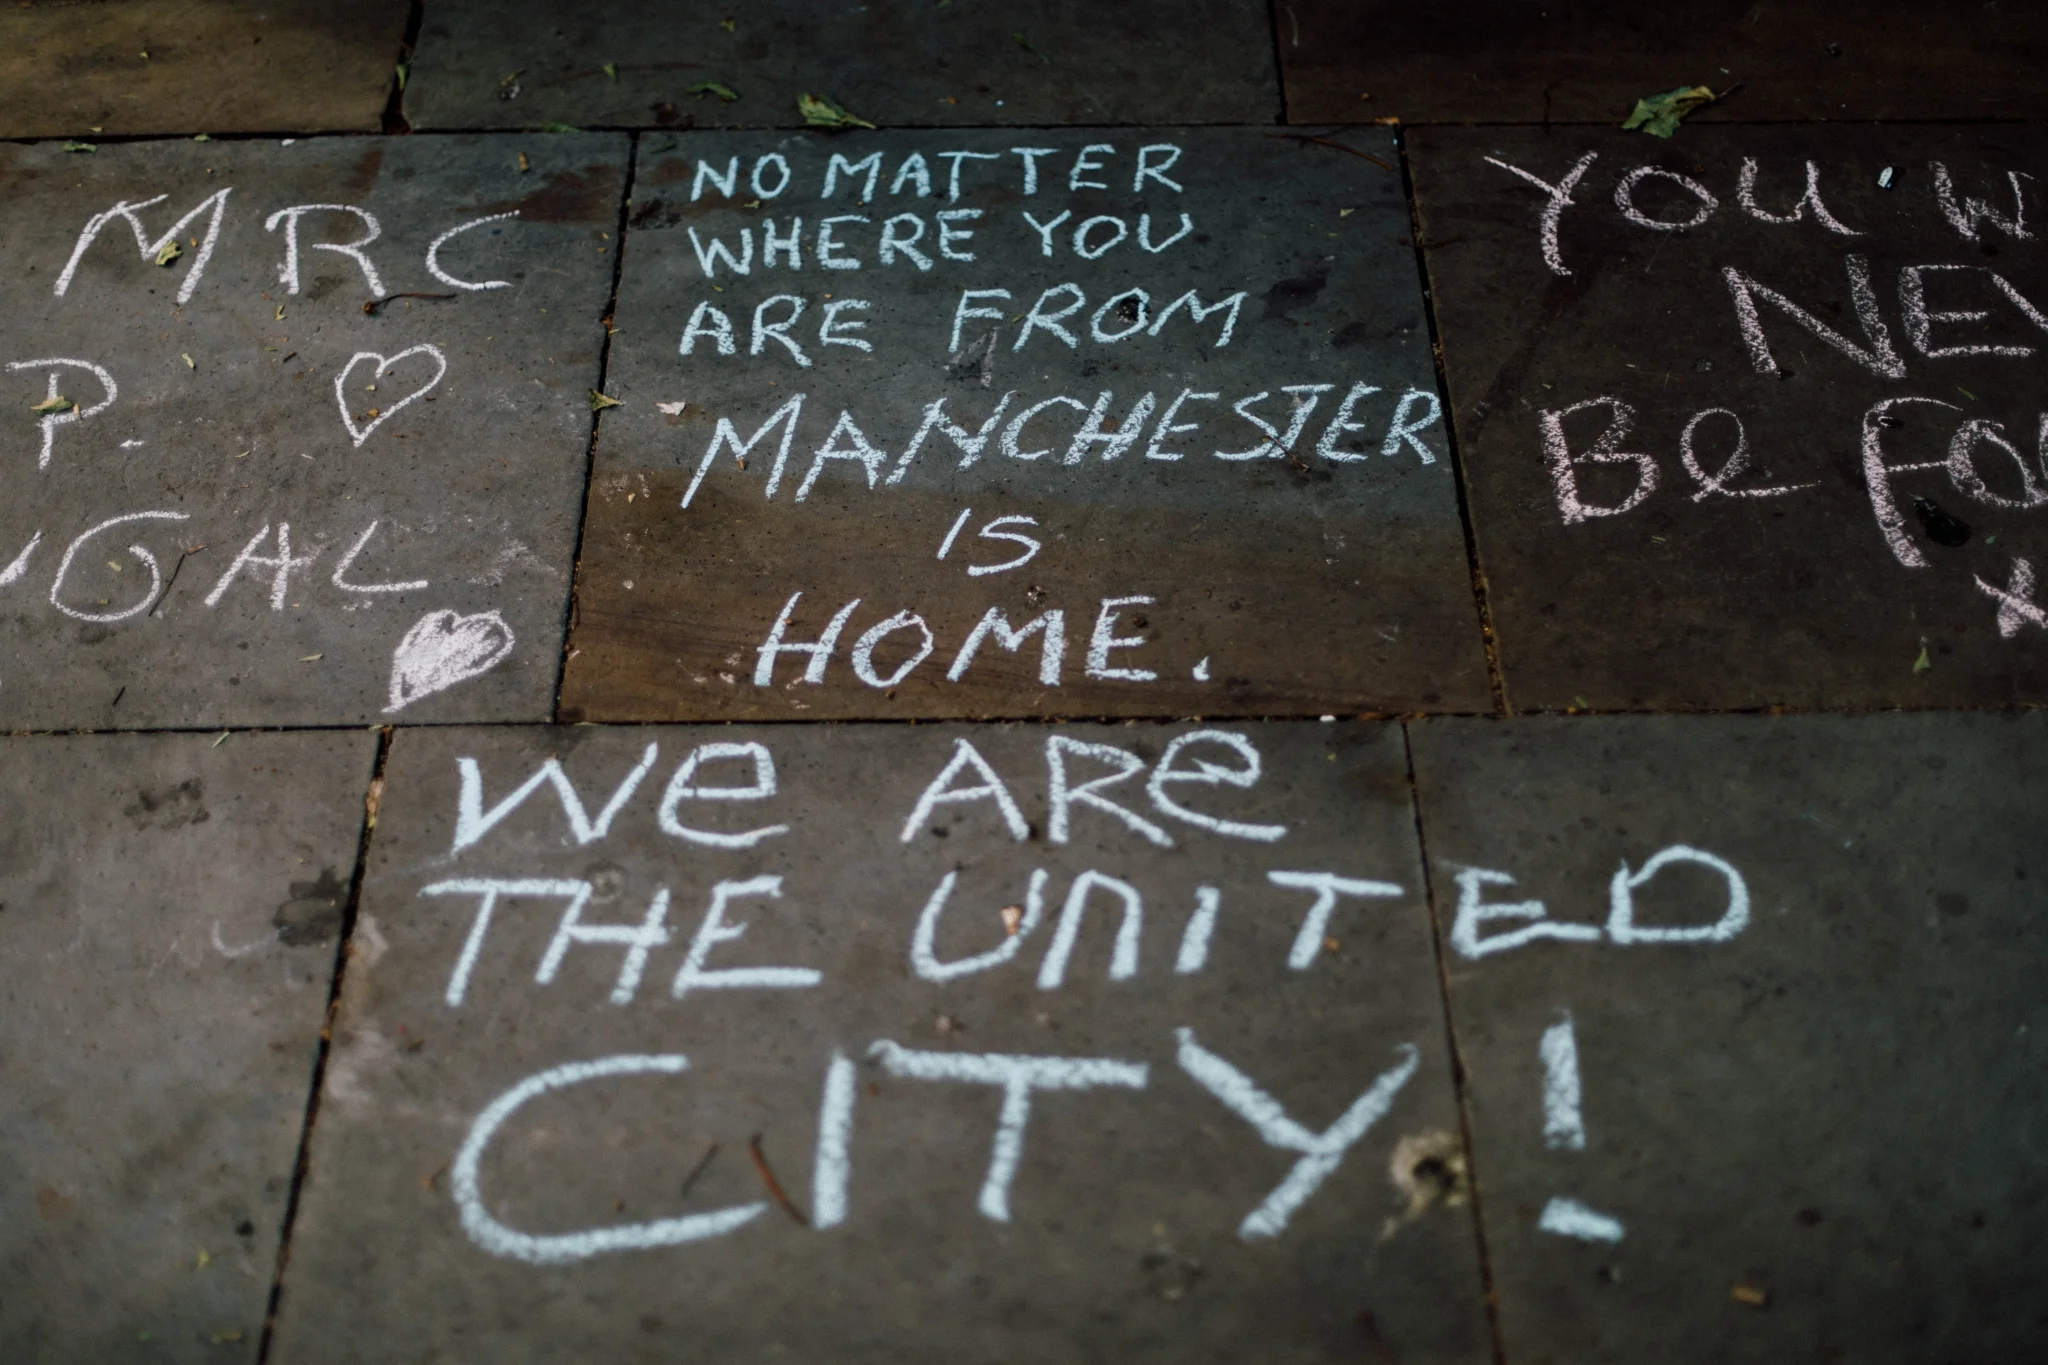 MRC
P.
GAL
NO MATTER
WHERE YOU
ARE FROM
MANCHESTER
IS
HOME.
YOU W
NEV
Be Fo
x
We ARe
THE UNITED
CITY!